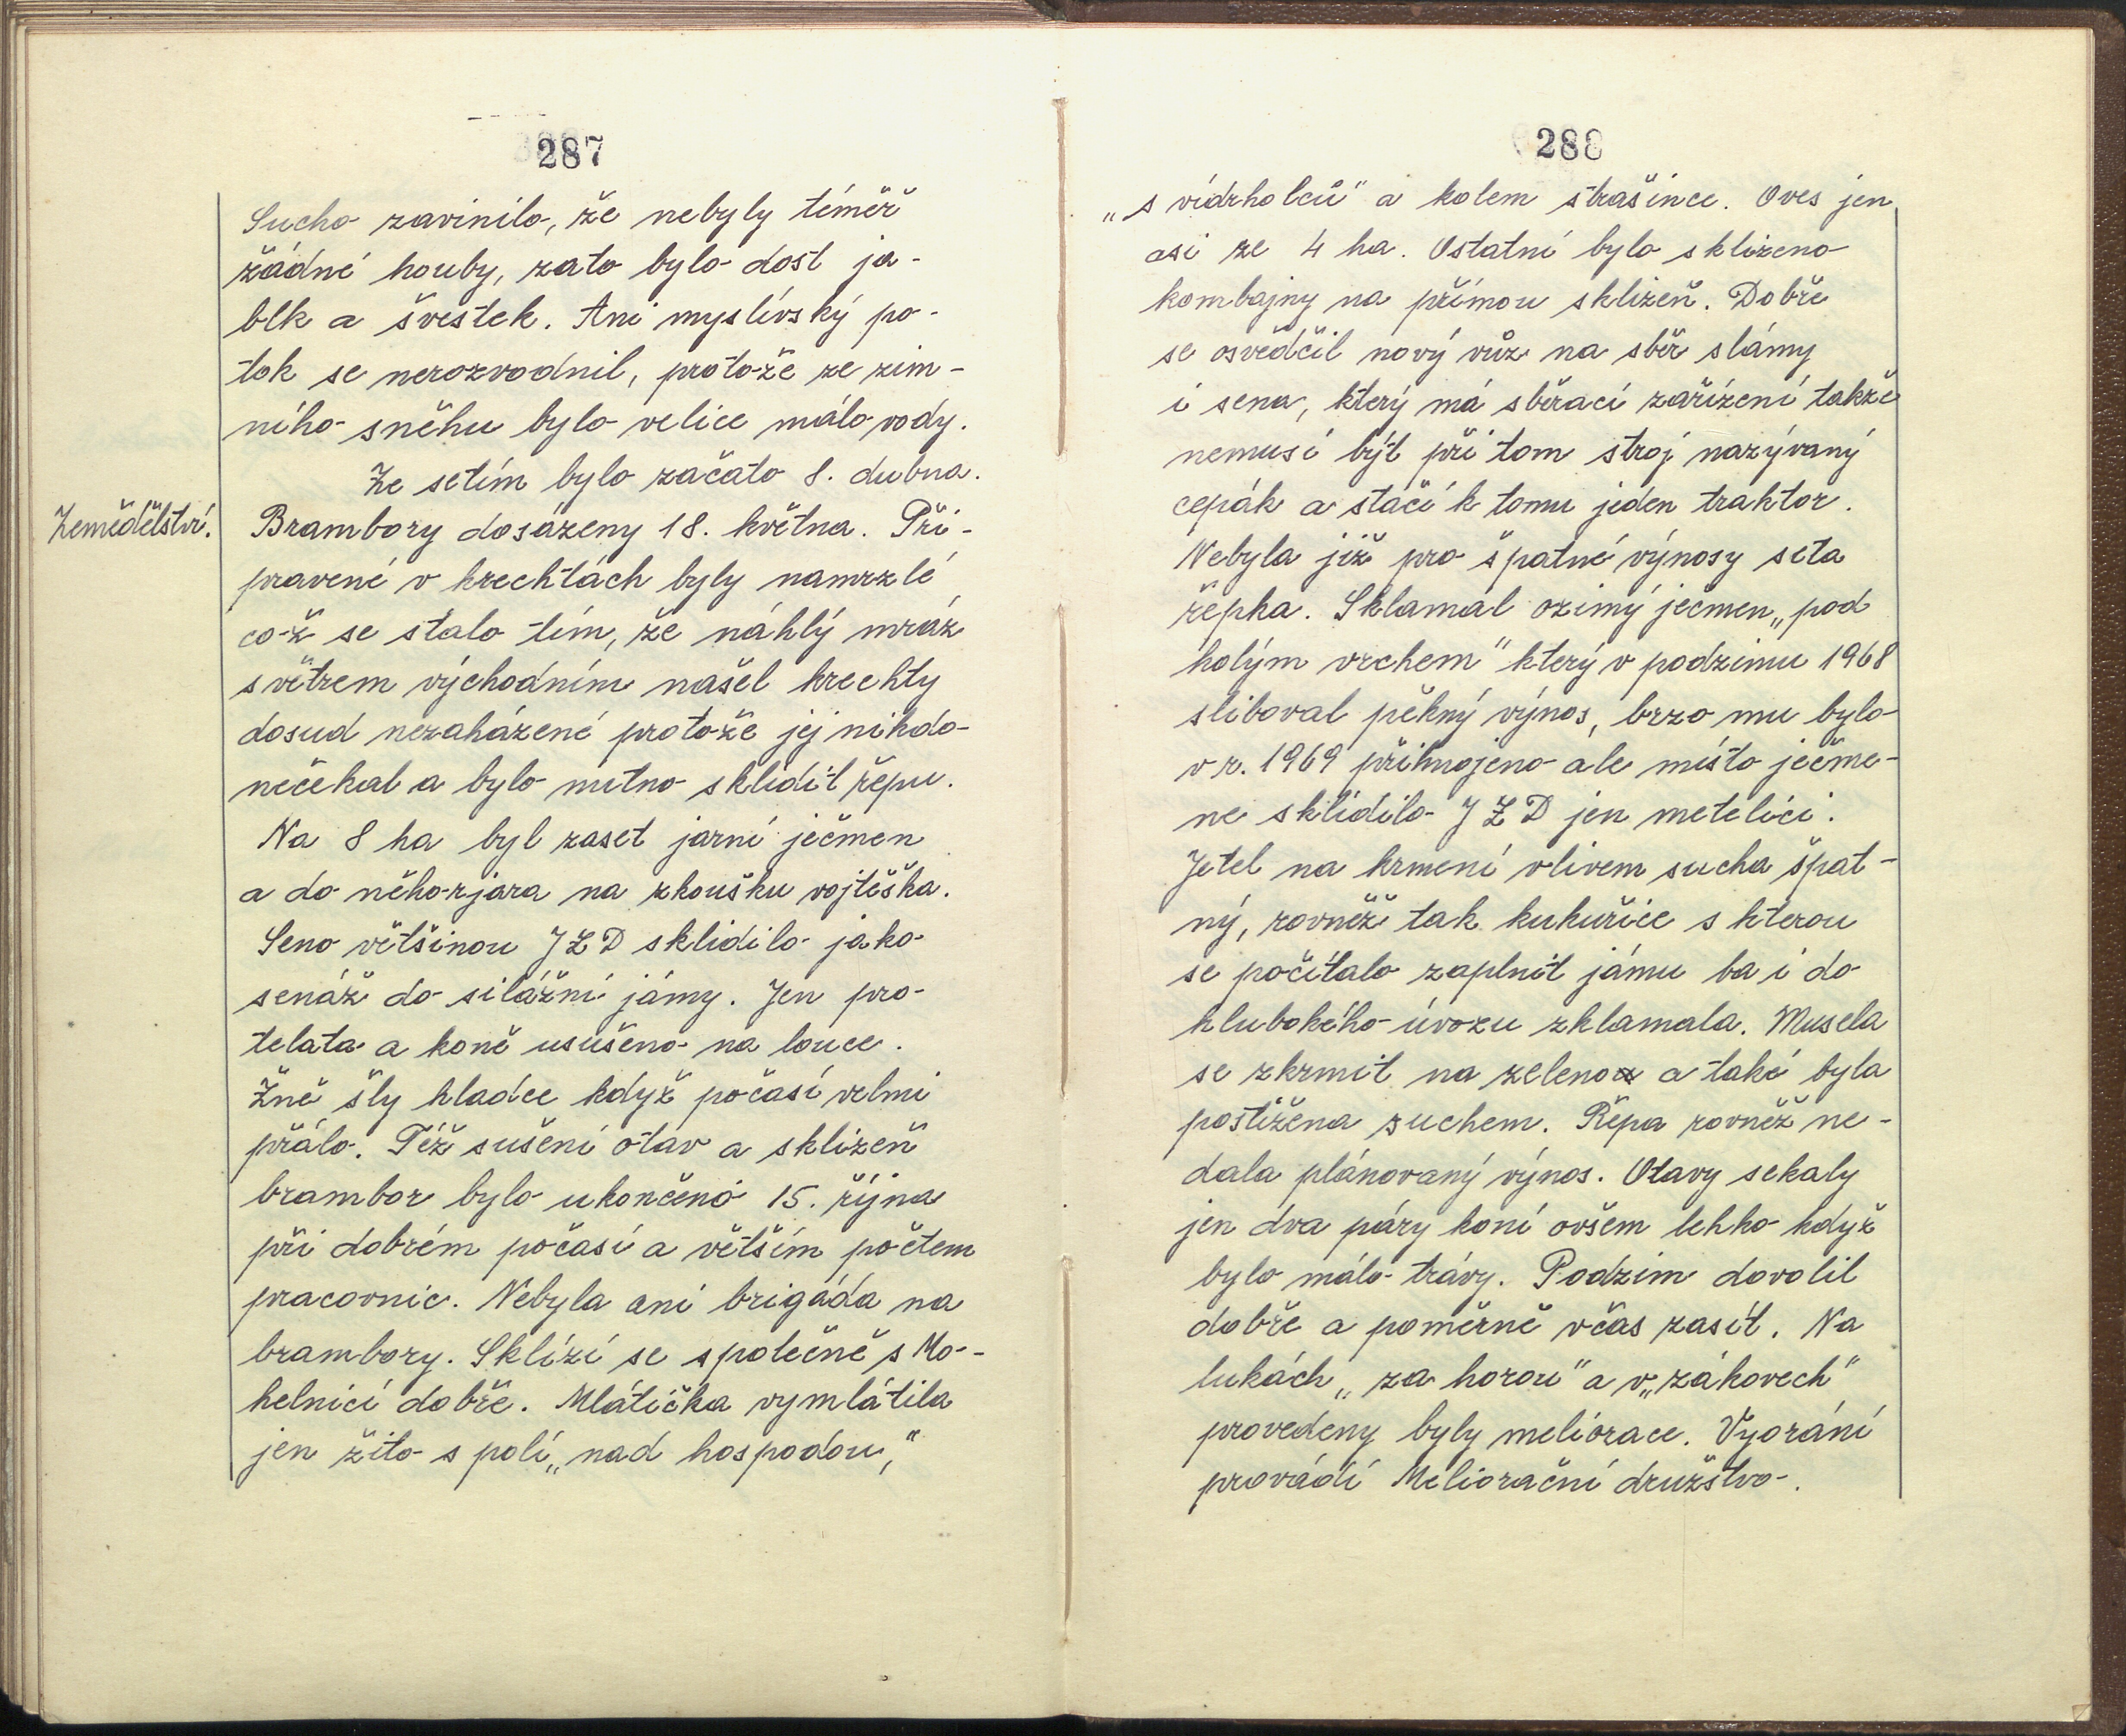 287
Sucho zavinilo, že nebyly téměř
žádné houby, zato bylo dost ja-
blk a švestek. Ani myslívský po-
tok se nerozvodnil, protože ze zim-
ního sněhu bylo velice málo vody.
Ze setím bylo začato 8. dubna.
Zemědělství.
Brambory dosázeny 18. května. Při-
pravené v krechtách byly namrzlé
což se stalo tím, že náhlý mráz
s větrem východním našel krechty
dosud nezaházené protože jej nikdo
nečekal a bylo nutno sklidit řepu.
Na 8 ha byl zaset jarní ječmen
a do něho zjara na zkoušku vojtěška.
Seno většinou JZD sklidilo jako
senáž do silážní jámy. Jen pro
telata a koně usušeno na louce.
Žně šly hladce když počasí velmi
přálo. Též sušení otav a sklizeň
brambor bylo ukončeno 15. října
při dobrém počasí a větším počtem
pracovnic. Nebyla ani brigáda na
brambory. Sklízí se společně s Mo-
helnicí dobře. Mlátička vymlátila
jen žito s polí „nad hospodou,"
288
„s vidrholců" a kolem strašince. Oves jen
asi ze 4 ha. Ostatní bylo sklizeno
kombajny na přímou sklizeň. Dobře
se osvědčil nový vůz na sběr slámy
i sena, který má sběrací zařízení takže
nemusí být při tom stroj nazývaný
cepák a stačí k tomu jeden traktor.
Nebyla již pro špatné výnosy seta
řepka. Sklamal ozimý ječmen „pod
holým vrchem" který v podzimu 1968
sliboval pěkný výnos, brzo mu bylo
v r. 1969 přihnojeno ale místo ječme-
ne sklidilo JZD jen metelici.
Jetel na krmení vlivem sucha špat-
ný, rovněž tak kukuřice s kterou
se počítalo zaplnit jámu ba i do
hlubokého úvozu zklamala. Musela
se zkrmit na zeleno a také byla
postižena suchem. Řepa rovněž ne-
dala plánovaný výnos. Otavy sekaly
jen dva páry koní ovšem lehko když
bylo málo trávy. Podzim dovolil
dobře a poměrně včas zasít. Na
lukách „za horou" a v „zákovech"
provedeny byly meliorace. Vyorání
provádí Meliorační družstvo.